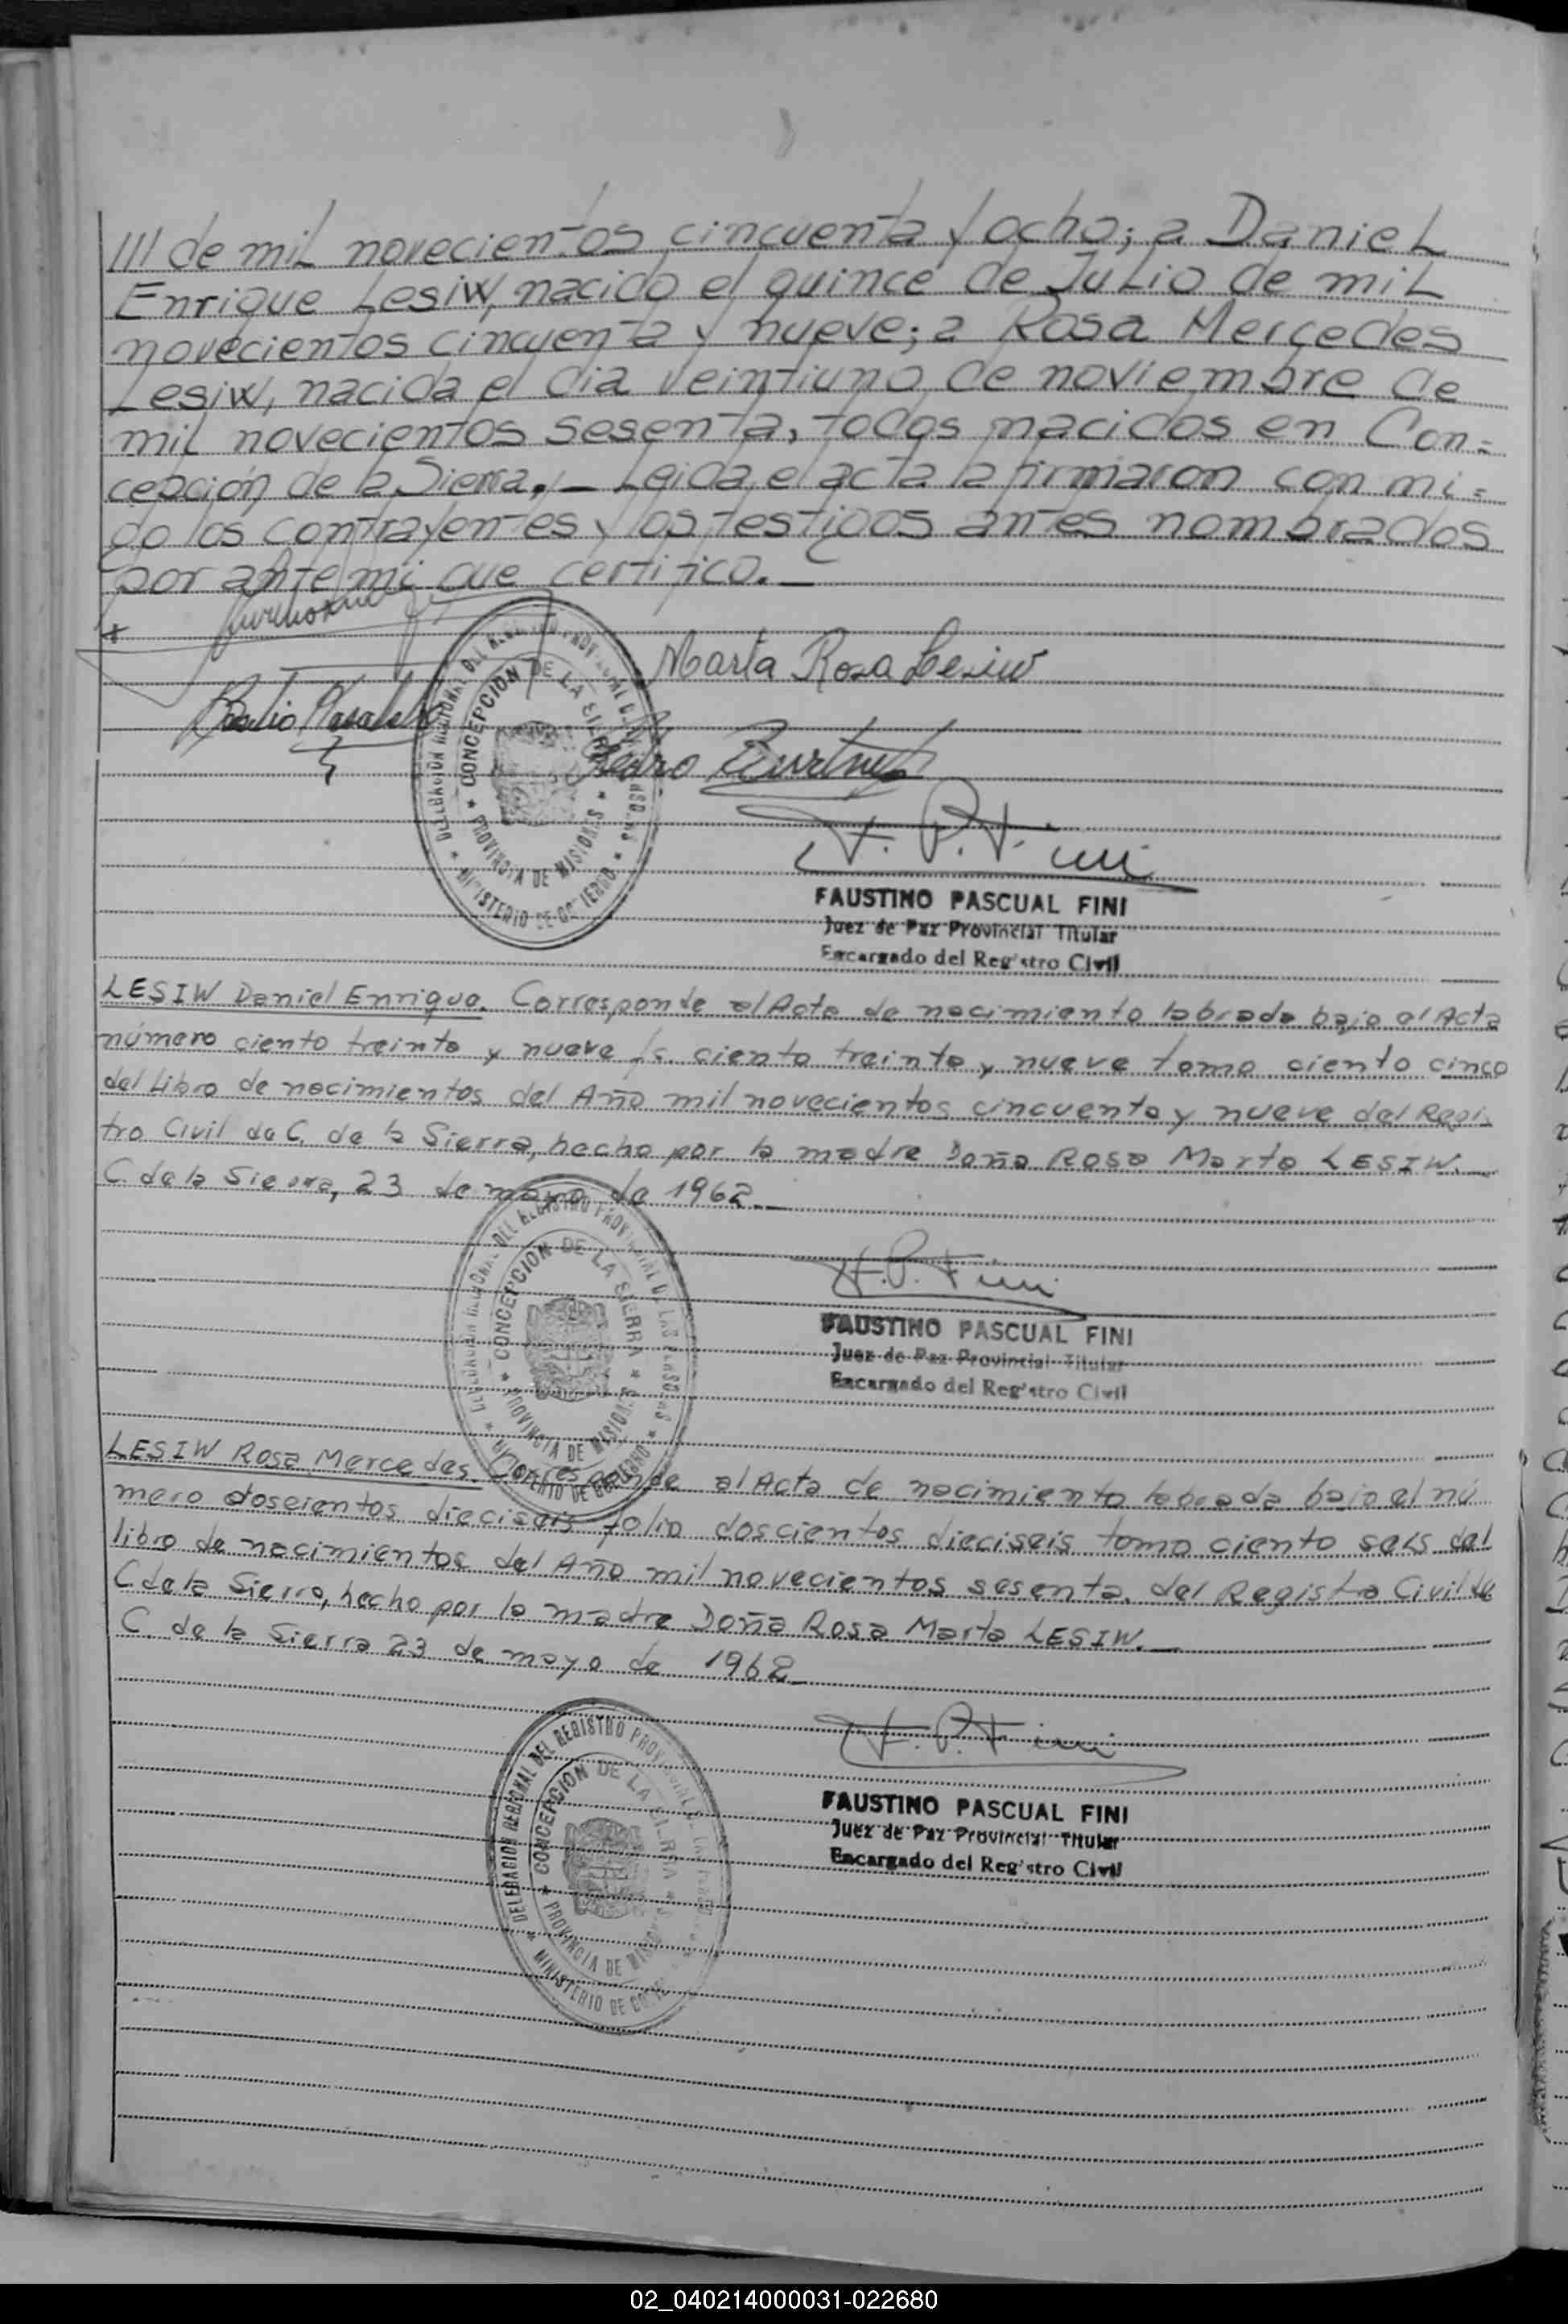 /// de mil novecientos cincuenta y ocho; a Daniel
Enrique Lesiw, nacido el quince de Julio de mil
novecientos cincuenta y nueve; a Rosa Mercedes
Lesiw, nacida el dia veintiuno de noviembre de
mil novecientos sesenta, todos nacidos en Con=
cepción de la Sierra.- Leida el acta la firmaron con mi=
go los contrayentes y los testigos antes nombrados
por ante mi que certifico.-
Marta Rosa Lesiw
Basilio
Pedro
DELEGACION REGIONAL DEL REGISTRO PROVINCIAL DE LAS PERSONAS
CONCEPCION DE LA SIERRA
PROVINCIA DE MISIONES
MINISTERIO DE GOBIERNO
F. P. Fini
FAUSTINO PASCUAL FINI
Juez de Paz Provincial Titular
Encargado del Reg'stro Civil
LESIW Daniel Enrique. Corresponde al Acta de nacimiento labrada bajo el Acta
número ciento treinta y nueve fs. ciento treinta y nueve tomo ciento cinco
del Libro de nacimientos del Año mil novecientos cincuenta y nueve del Regis
tro Civil de C. de la Sierra, hecho por la madre Doña Rosa Marta LESIW.-
C. de la Sierra, 23 de mayo de 1962.-
DELEGACION REGIONAL DEL REGISTRO PROVINCIAL DE LAS PERSONAS
CONCEPCION DE LA SIERRA
PROVINCIA DE MISIONES
MINISTERIO DE GOBIERNO
F. P. Fini
FAUSTINO PASCUAL FINI
Juez de Paz Provincial Titular
Encargado del Reg'stro Civil
LESIW Rosa Mercedes. Corresponde al Acta de nacimiento labrada bajo el nú
mero doscientos dieciseis folio doscientos dieciseis tomo ciento seis del
libro de nacimientos del Año mil novecientos sesenta. del Registro Civil de
C de la Sierra, hecho por la madre Doña Rosa Marta LESIW.-
C. de la Sierra 23 de mayo de 1962-
DELEGACION REGIONAL DEL REGISTRO PROVINCIAL DE LAS PERSONAS
CONCEPCION DE LA SIERRA
PROVINCIA DE MISIONES
MINISTERIO DE GOBIERNO
F. P. Fini
FAUSTINO PASCUAL FINI
Juez de Paz Provincial Titular
Encargado del Reg'stro Civil
02_040214000031-022680